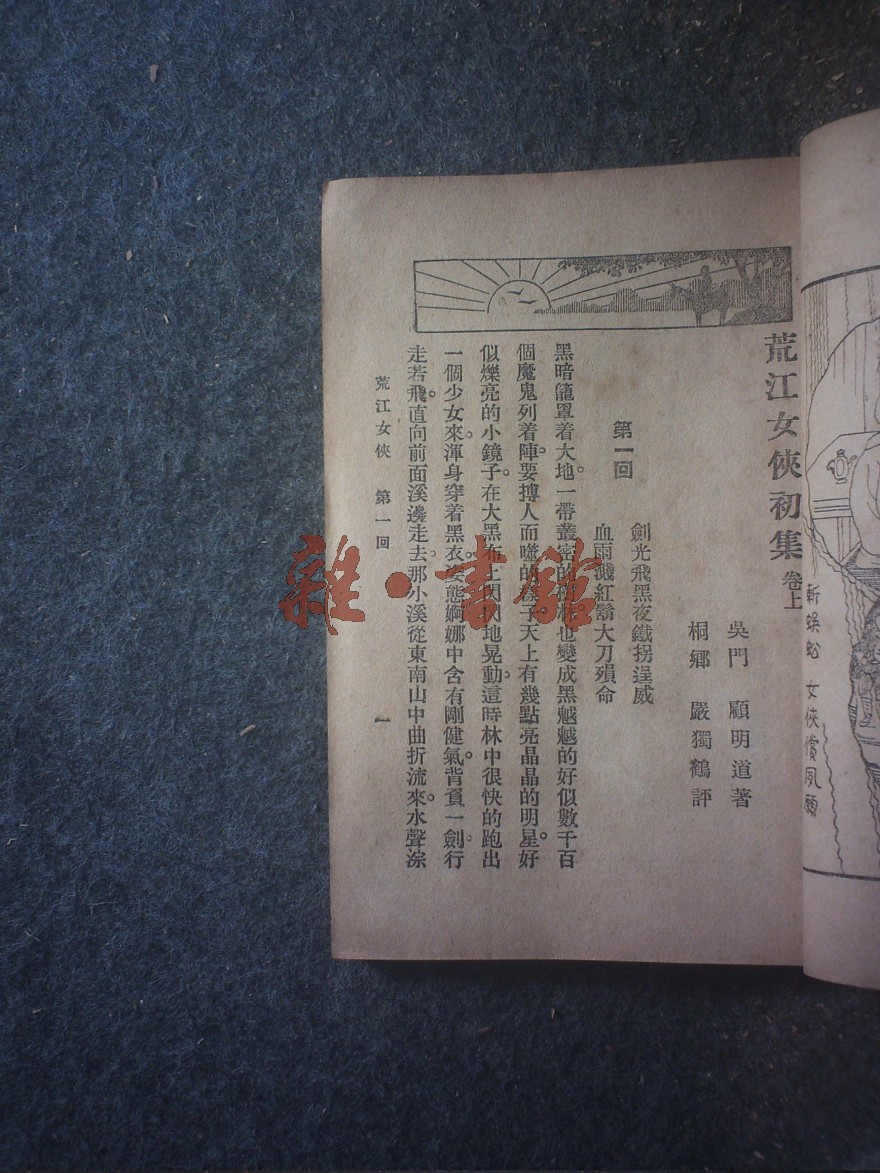 斬蜈蚣 女俠償夙願
荒江女俠初集 卷上
吳門 顧明道著
桐鄉 嚴獨鶴評
第一回
劍光飛黑夜鐵拐逞威
血雨濺紅鬍大刀殞命
黑暗籠罩着大地。一帶叢密的樹林也變成黑魆魆的好似數千百
個魔鬼列着陣。要搏人而噬的樣子天上有幾點亮晶晶的明星。好
似爍亮的小鏡子。在大黑布上閃閃地晃動。這時林中很快的跑出
一個少女來。渾身穿着黑衣。姿態婀娜中含有剛健氣。背負一劍。行
走若飛。直向前面溪邊走去。那小溪從東南山中曲折流來。水聲淙
荒江女俠 第一回 一
雜·書館